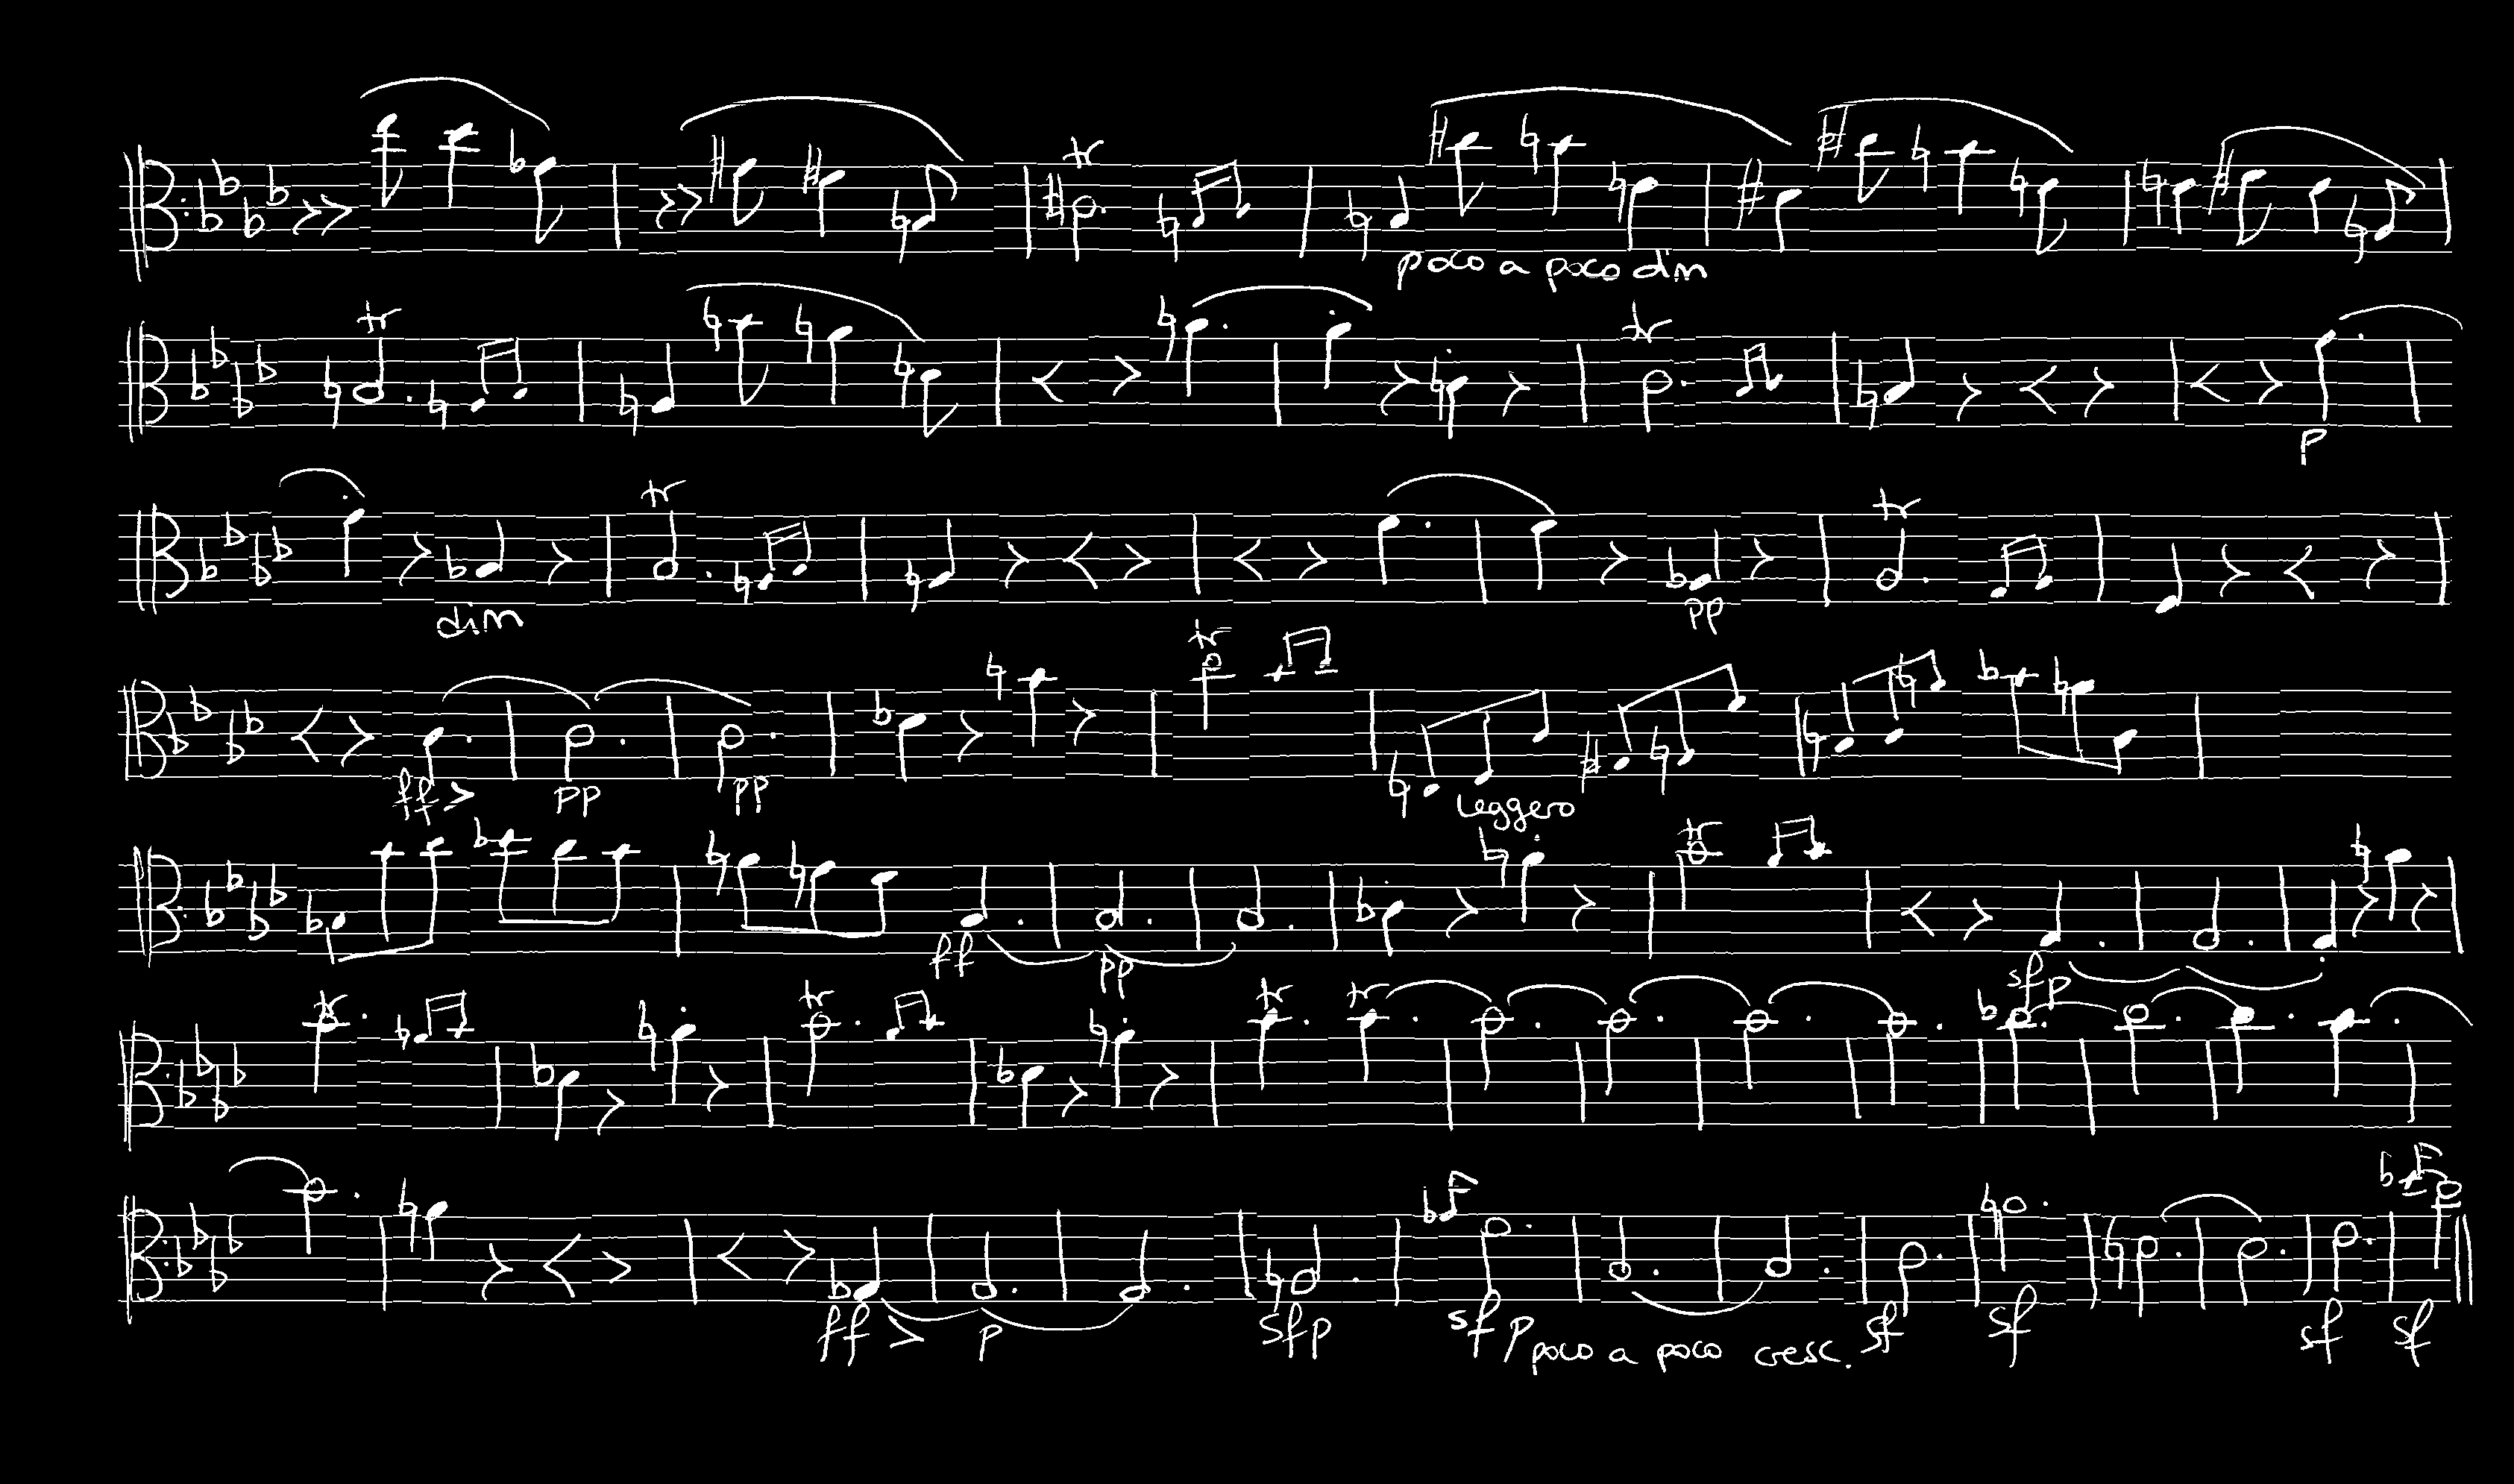 tr
poco a poco dim
tr tr
p
tr tr
dim pp
tr
ff pp pp leggero
tr
ff pp sfp
tr tr tr tr
ff p sfp sfp poco a poco cresc. sf sf sf sf